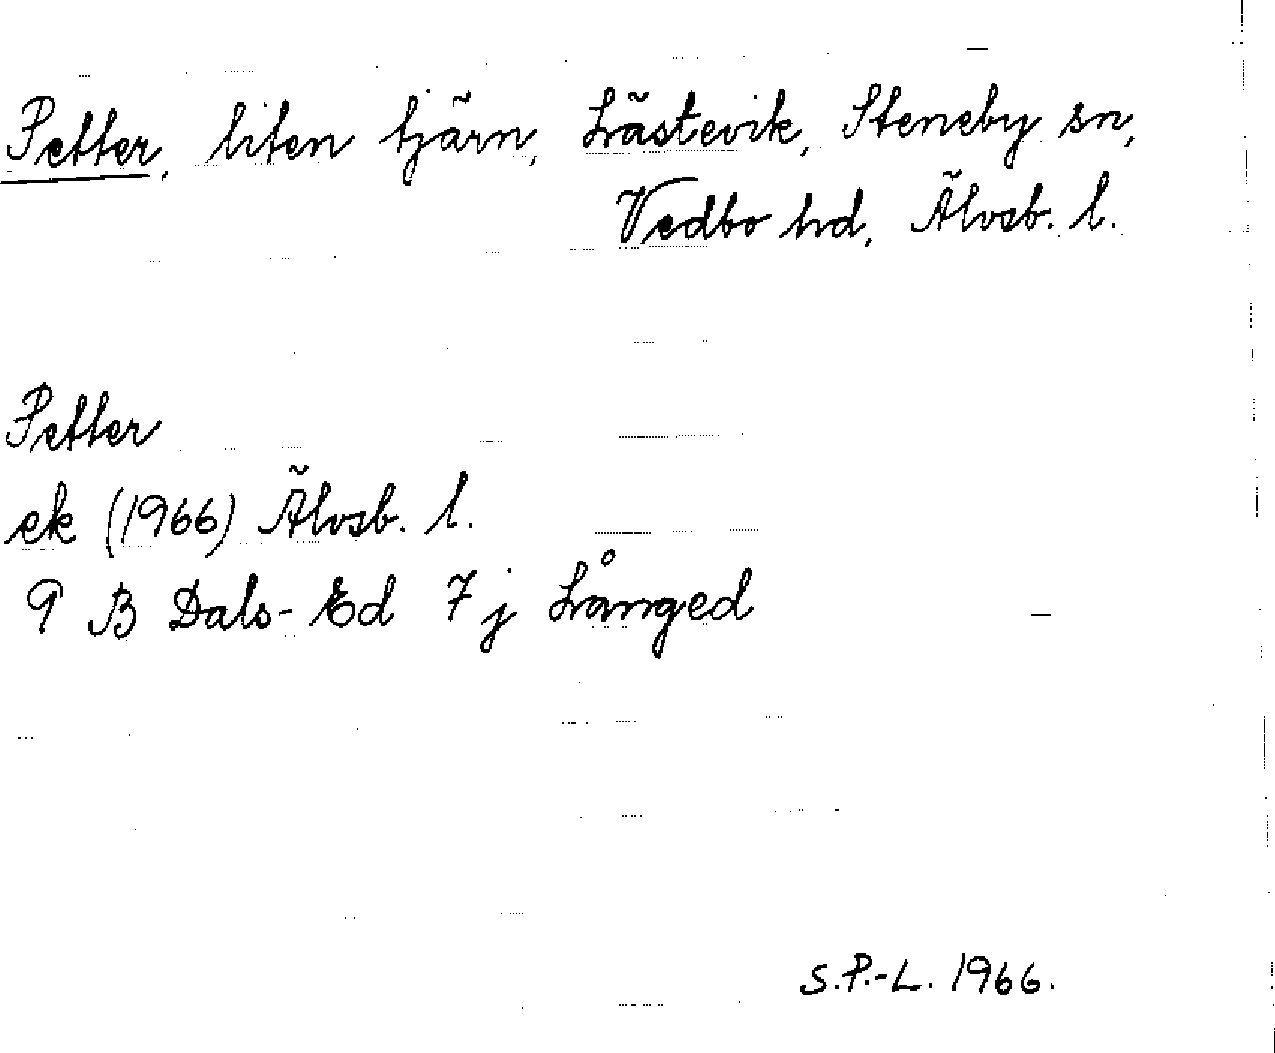 Petter, liten tjärn, Lästevik, Steneby sn,
Vedbo hd, Älvsb. l.
Petter
ek (1966) Älvsb. l.
9 B Dals-Ed 7 j Långed
S.P.-L. 1966.